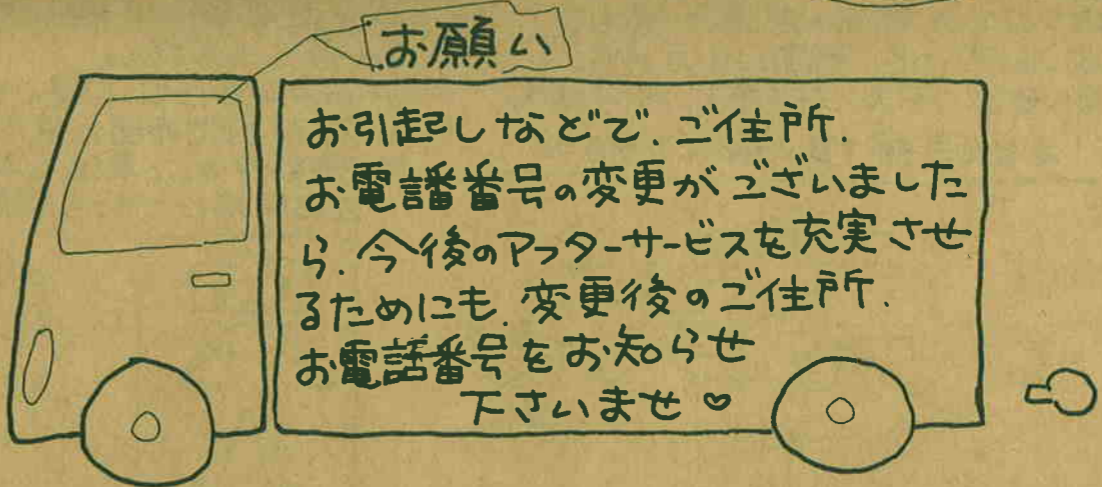 お願い
お引起しなどで、ご住所、
お電譒番号の変更がございました
ら、今後のアフターサービスを充実させ
るためにも、変更後のご住所、
お電話番号をお知らせ
下さいませ♡